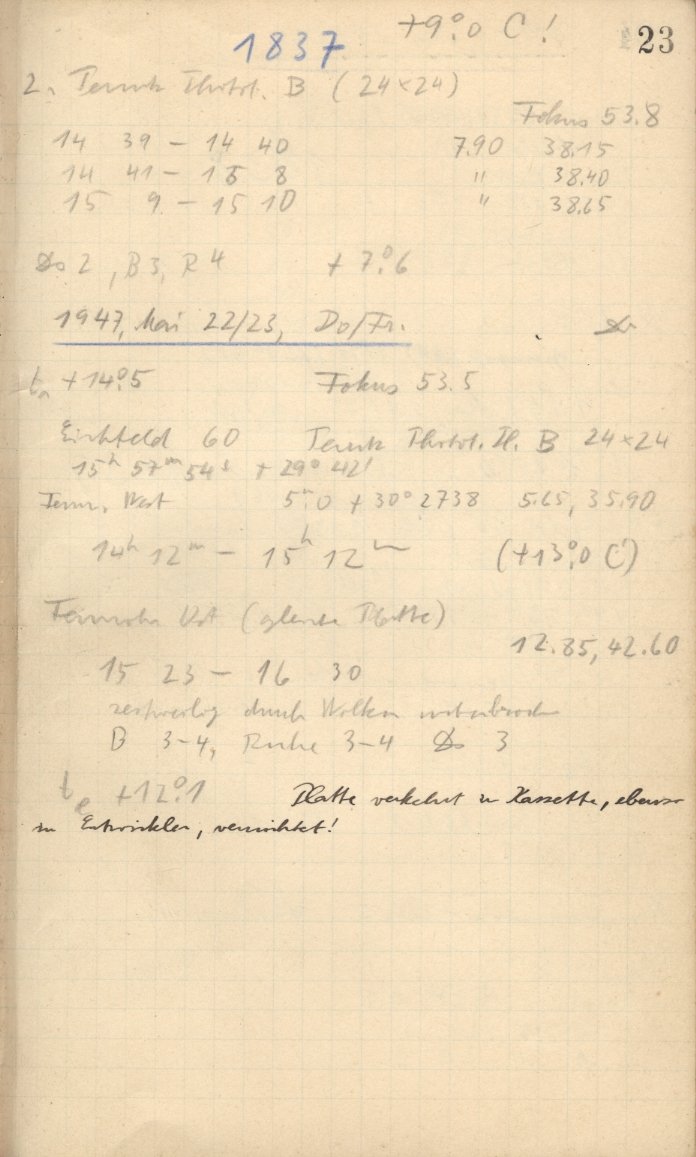 +9°.0 C!
23
1837
2. Fernrohr Phototel. B (24×24)
Fokus 53.8
14 39 – 14 40 7.90 38.15
14 41 – 15 8 " 38.40
15 9 – 15 10 " 38.65
2, B3, R 4 + 7°.6
1947, Mai 22/23, Do/Fr.
+14°.5 Fokus 53.5
Eichfeld 60 B 24×24
15ʰ 57ᵐ 54ˢ + 29° 42'
West 5ᵐ.0 + 30° 2738 5.65, 35.90
14ʰ 12ᵐ – 15ʰ 12ᵐ (+13°.0 C)
Fernrohr Ost (gleiche Platte)
12.85, 42.60
15 23 – 16 30
zeitweilig durch Wolken unterbrochen
B 3–4, Ruhe 3–4 3
tₑ +12°.1 Platte verkehrt in Kassette, ebenso
im Entwickler, vernichtet!